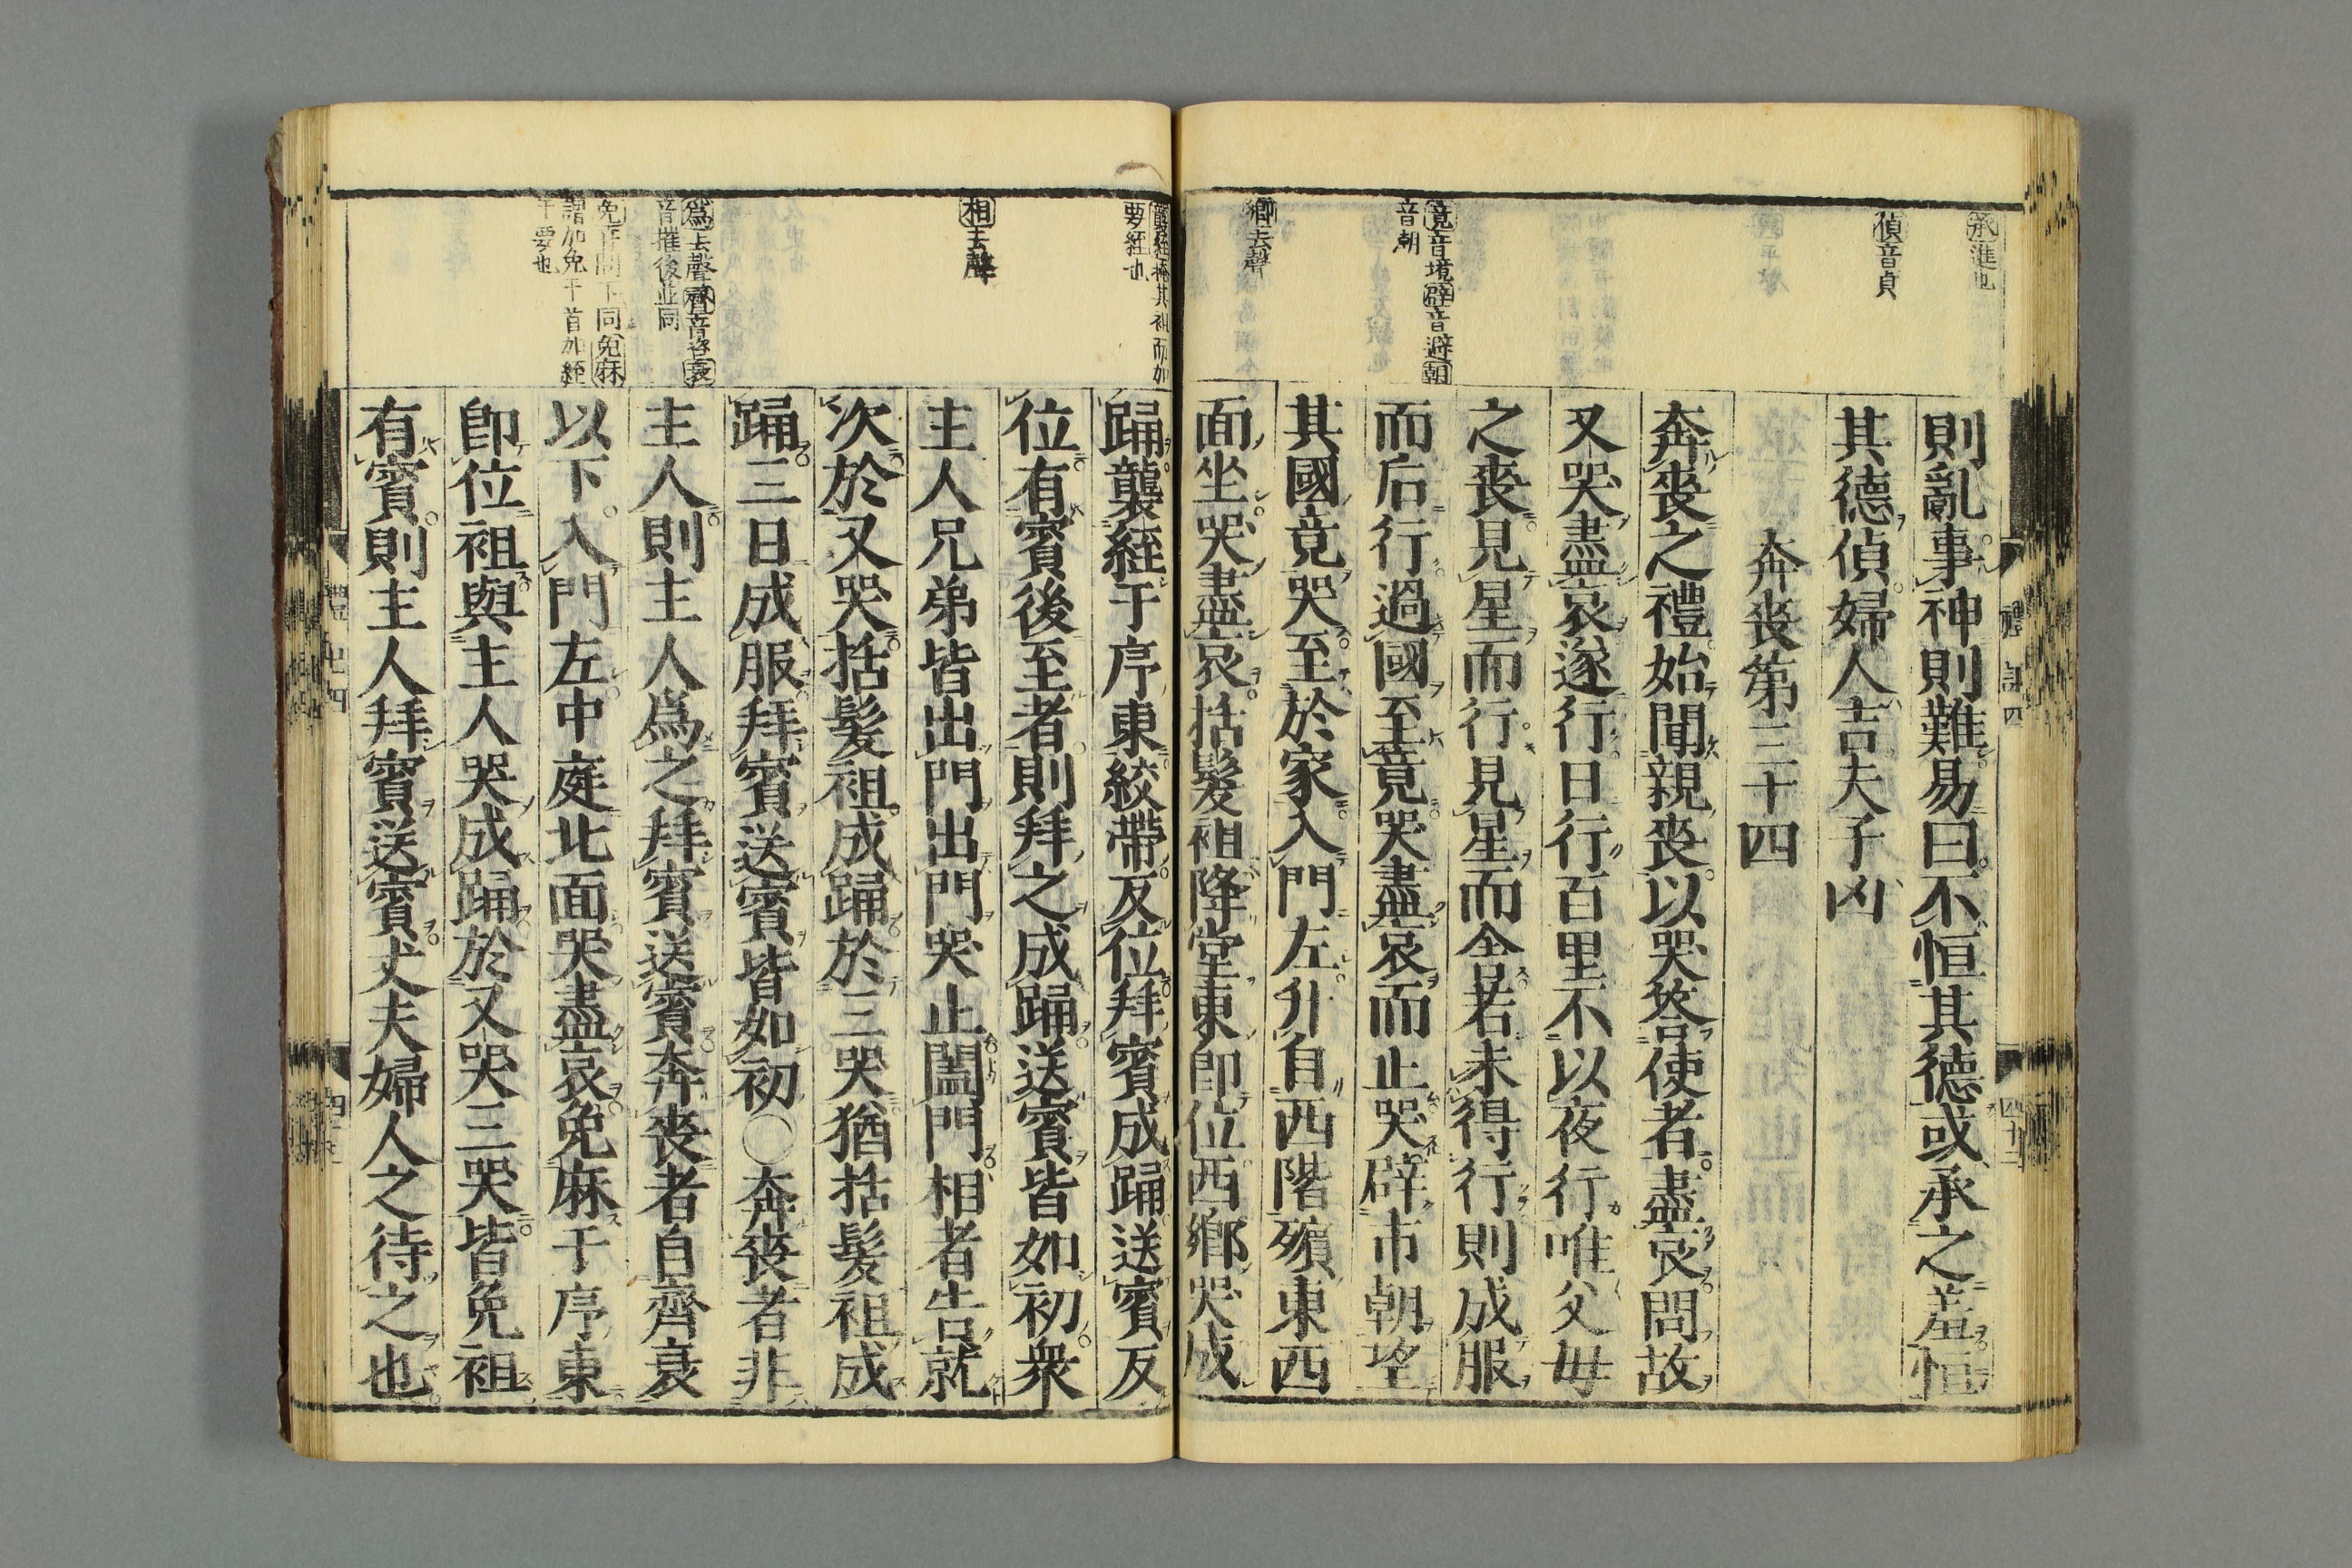 承進也
偵音貞
竟音境辟音避朝
音朝
鄉去聲
則亂事神則難易曰不恒其德或承之羞恒
其德偵婦人吉夫子凶
奔喪第三十四
奔喪之禮始聞親喪以哭答使者盡哀問故
又哭盡哀遂行日行百里不以夜行唯父母
之喪見星而行見星而舍若未得行則成服
而后行過國至竟哭盡哀而止哭辟市朝望
其國竟哭至於家入門左升自西階殯東西
面坐哭盡哀括髮袒降堂東即位西鄉哭成
襲絰掩其袒而加
要絰也
相去聲
為去聲齊音咨衰
音摧後並同
免音問下同免麻
謂加免于首加絰
于要也
踊襲絰于序東絞帶反位拜賓成踊送賓反
位有賓後至者則拜之成踊送賓皆如初衆
主人兄弟皆出門出門哭止闔門相者告就
次於又哭括髮袒成踊於三哭猶括髮袒成
踊三日成服拜賓送賓皆如初○奔喪者非
主人則主人爲之拜賓送賓奔喪者自齊衰
以下入門左中庭北面哭盡哀免麻于序東
即位袒與主人哭成踊於又哭三哭皆免袒
有賓則主人拜賓送賓丈夫婦人之待之也
禮記四
四十二